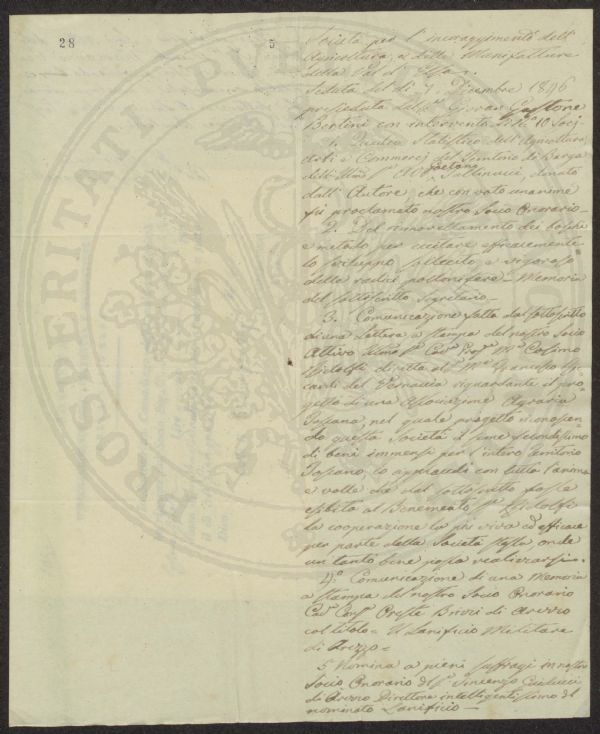 28 5
Società per l'incoraggimento dell'
Agricoltura, e delle Manifatture
della Val d'Elsa.
Seduta del dì 7. Dicembre 1846
presseduta dal Sig. Giovan Gastone
Bertini con intervento di N.º 10 Socj
1. Quadro Statistico dell'Agricoltura
Arti e Commercj del Vicariato di Barga
dell' Avv. Gaetano donato
dall' Autore, che con voto unanime
fù proclamato nostro Socio Onorario_
2. Del rinnovellamento dei boschi
e metodo per eccitare efficacemente
lo sviluppo sollecito, e vigoroso
delle radici pollonifere_ Memoria
del sottoscritto Segretario_
3. Comunicazione fatta dal sottoscritto
di una Lettera a stampa del nostro Socio
Attivo Cav. Prof. M.se Cosimo
Ridolfi diretta al Sig. Francesco
del Vernaccia riguardante il pro-
getto di una Associazione Agraria
Toscana, nel quale progetto riconoscen-
do questa Società il seme fecondissimo
di beni immensi per l'intero Territorio
Toscano, lo applaudì con tutta l'anima
e volle che dal sottoscritto fosse
esibita al Benemerito Ridolfi
la cooperazione la più viva ed efficace
per parte della Società stessa, onde
un tanto bene possa realizzarsi.
4.º Comunicazione di una Memoria
a stampa del nostro Socio Onorario
Cav. Oreste Brizi di Arezzo
col titolo = Il Lanificio Militare
di Arezzo =
5. Nomina a pieni suffragi in nostro
Socio Onorario del Sig. Vincenzo Giudici
di Arezzo Direttore intelligentissimo del
nominato Lanificio_
PROSPERITATI